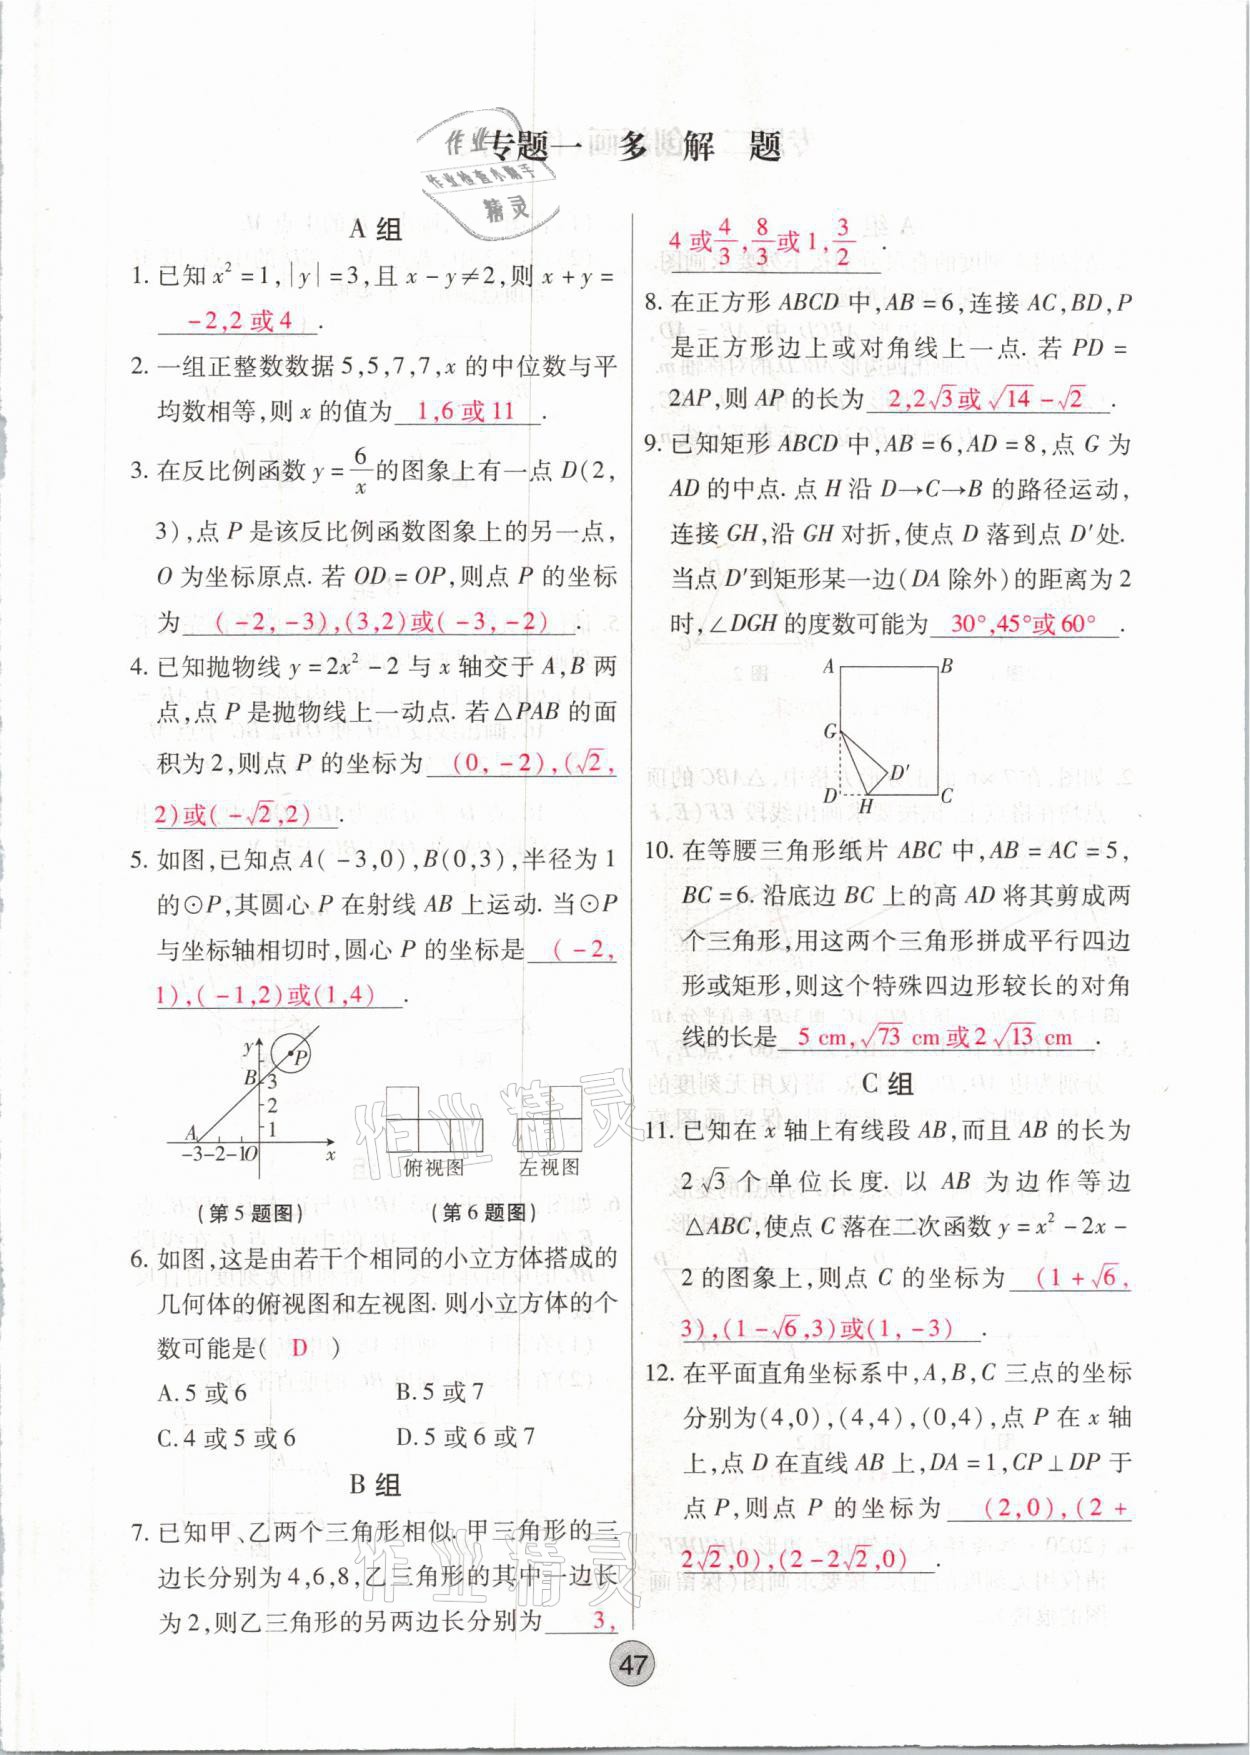 专题一 多 解 题
作业
作业检查小助手
精灵
A 组
1. 已知 x²=1,|y|=3,且 x-y≠2,则 x+y=
-2,2 或 4 .
2. 一组正整数数据 5,5,7,7,x 的中位数与平
均数相等,则 x 的值为 1,6 或 11 .
3. 在反比例函数 y=6/x 的图象上有一点 D(2,
3),点 P 是该反比例函数图象上的另一点,
O 为坐标原点. 若 OD=OP,则点 P 的坐标
为 (-2,-3),(3,2)或(-3,-2) .
4. 已知抛物线 y=2x²-2 与 x 轴交于 A,B 两
点,点 P 是抛物线上一动点. 若△PAB 的面
积为 2,则点 P 的坐标为 (0,-2),(√2,
2)或(-√2,2) .
5. 如图,已知点 A(-3,0),B(0,3),半径为 1
的⊙P,其圆心 P 在射线 AB 上运动. 当⊙P
与坐标轴相切时,圆心 P 的坐标是 (-2,
1),(-1,2)或(1,4) .
y
P
B
3
2
1
A
-3 -2 -1 O x
俯视图 左视图
(第 5 题图) (第 6 题图)
6. 如图,这是由若干个相同的小立方体搭成的
几何体的俯视图和左视图. 则小立方体的个
数可能是( D )
A. 5 或 6 B. 5 或 7
C. 4 或 5 或 6 D. 5 或 6 或 7
B 组
7. 已知甲、乙两个三角形相似. 甲三角形的三
边长分别为 4,6,8,乙三角形的其中一边长
为 2,则乙三角形的另两边长分别为 3,
4 或 4/3, 8/3 或 1, 3/2 .
8. 在正方形 ABCD 中,AB=6,连接 AC,BD,P
是正方形边上或对角线上一点. 若 PD=
2AP,则 AP 的长为 2,2√3 或 √14-√2 .
9. 已知矩形 ABCD 中,AB=6,AD=8,点 G 为
AD 的中点. 点 H 沿 D→C→B 的路径运动,
连接 GH,沿 GH 对折,使点 D 落到点 D′处.
当点 D′到矩形某一边(DA 除外)的距离为 2
时,∠DGH 的度数可能为 30°,45°或 60° .
A B
G
D′
D H C
10. 在等腰三角形纸片 ABC 中,AB=AC=5,
BC=6. 沿底边 BC 上的高 AD 将其剪成两
个三角形,用这两个三角形拼成平行四边
形或矩形,则这个特殊四边形较长的对角
线的长是 5 cm,√73 cm 或 2√13 cm .
C 组
11. 已知在 x 轴上有线段 AB,而且 AB 的长为
2√3 个单位长度. 以 AB 为边作等边
△ABC,使点 C 落在二次函数 y=x²-2x-
2 的图象上,则点 C 的坐标为 (1+√6,
3),(1-√6,3)或(1,-3) .
12. 在平面直角坐标系中,A,B,C 三点的坐标
分别为(4,0),(4,4),(0,4),点 P 在 x 轴
上,点 D 在直线 AB 上,DA=1,CP⊥DP 于
点 P,则点 P 的坐标为 (2,0),(2+
2√2,0),(2-2√2,0) .
作业精灵
作业精灵
47